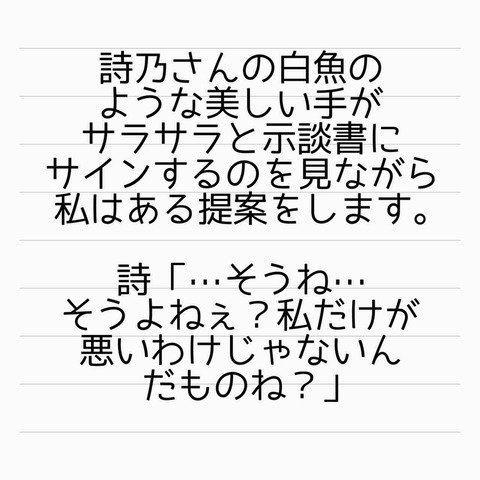 詩乃さんの白魚の
ような美しい手が
サラサラと示談書に
サインするのを見ながら
私はある提案をします。
詩「…そうね…
そうよねぇ？私だけが
悪いわけじゃないん
だものね？」